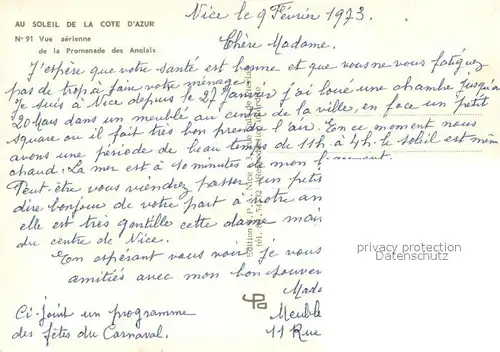 AU SOLEIL DE LA COTE D'AZUR
N° 91 Vue aérienne
de la Promenade des Anglais
Nice le 9 Février 1973.
Chère Madame.
J'espère que votre santé est bonne et que vous ne vous fatiguez
pas de trop à faire votre ménage.
Je suis à Nice depuis le 27 Janvier j'ai loué une chambre jusqu'au
20 Mars dans un meublé au centre de la ville, en face un petit
square ou il fait très bon prendre l'air. En ce moment nous
avons une période de beau temps de 11h à 4h le soleil est même
chaud. La mer est à 10 minutes de mon
Peut être vous viendrez passer un petit
dire bonjour de votre part à notre an
elle est très gentille cette dame mais
du centre de Nice.
En espérant vous voir je vous
amitiés avec mon bon souven
Mada
Meublé
11 Rue
Ci-joint un programme
des fêtes du Carnaval.
privacy protection
Datenschutz